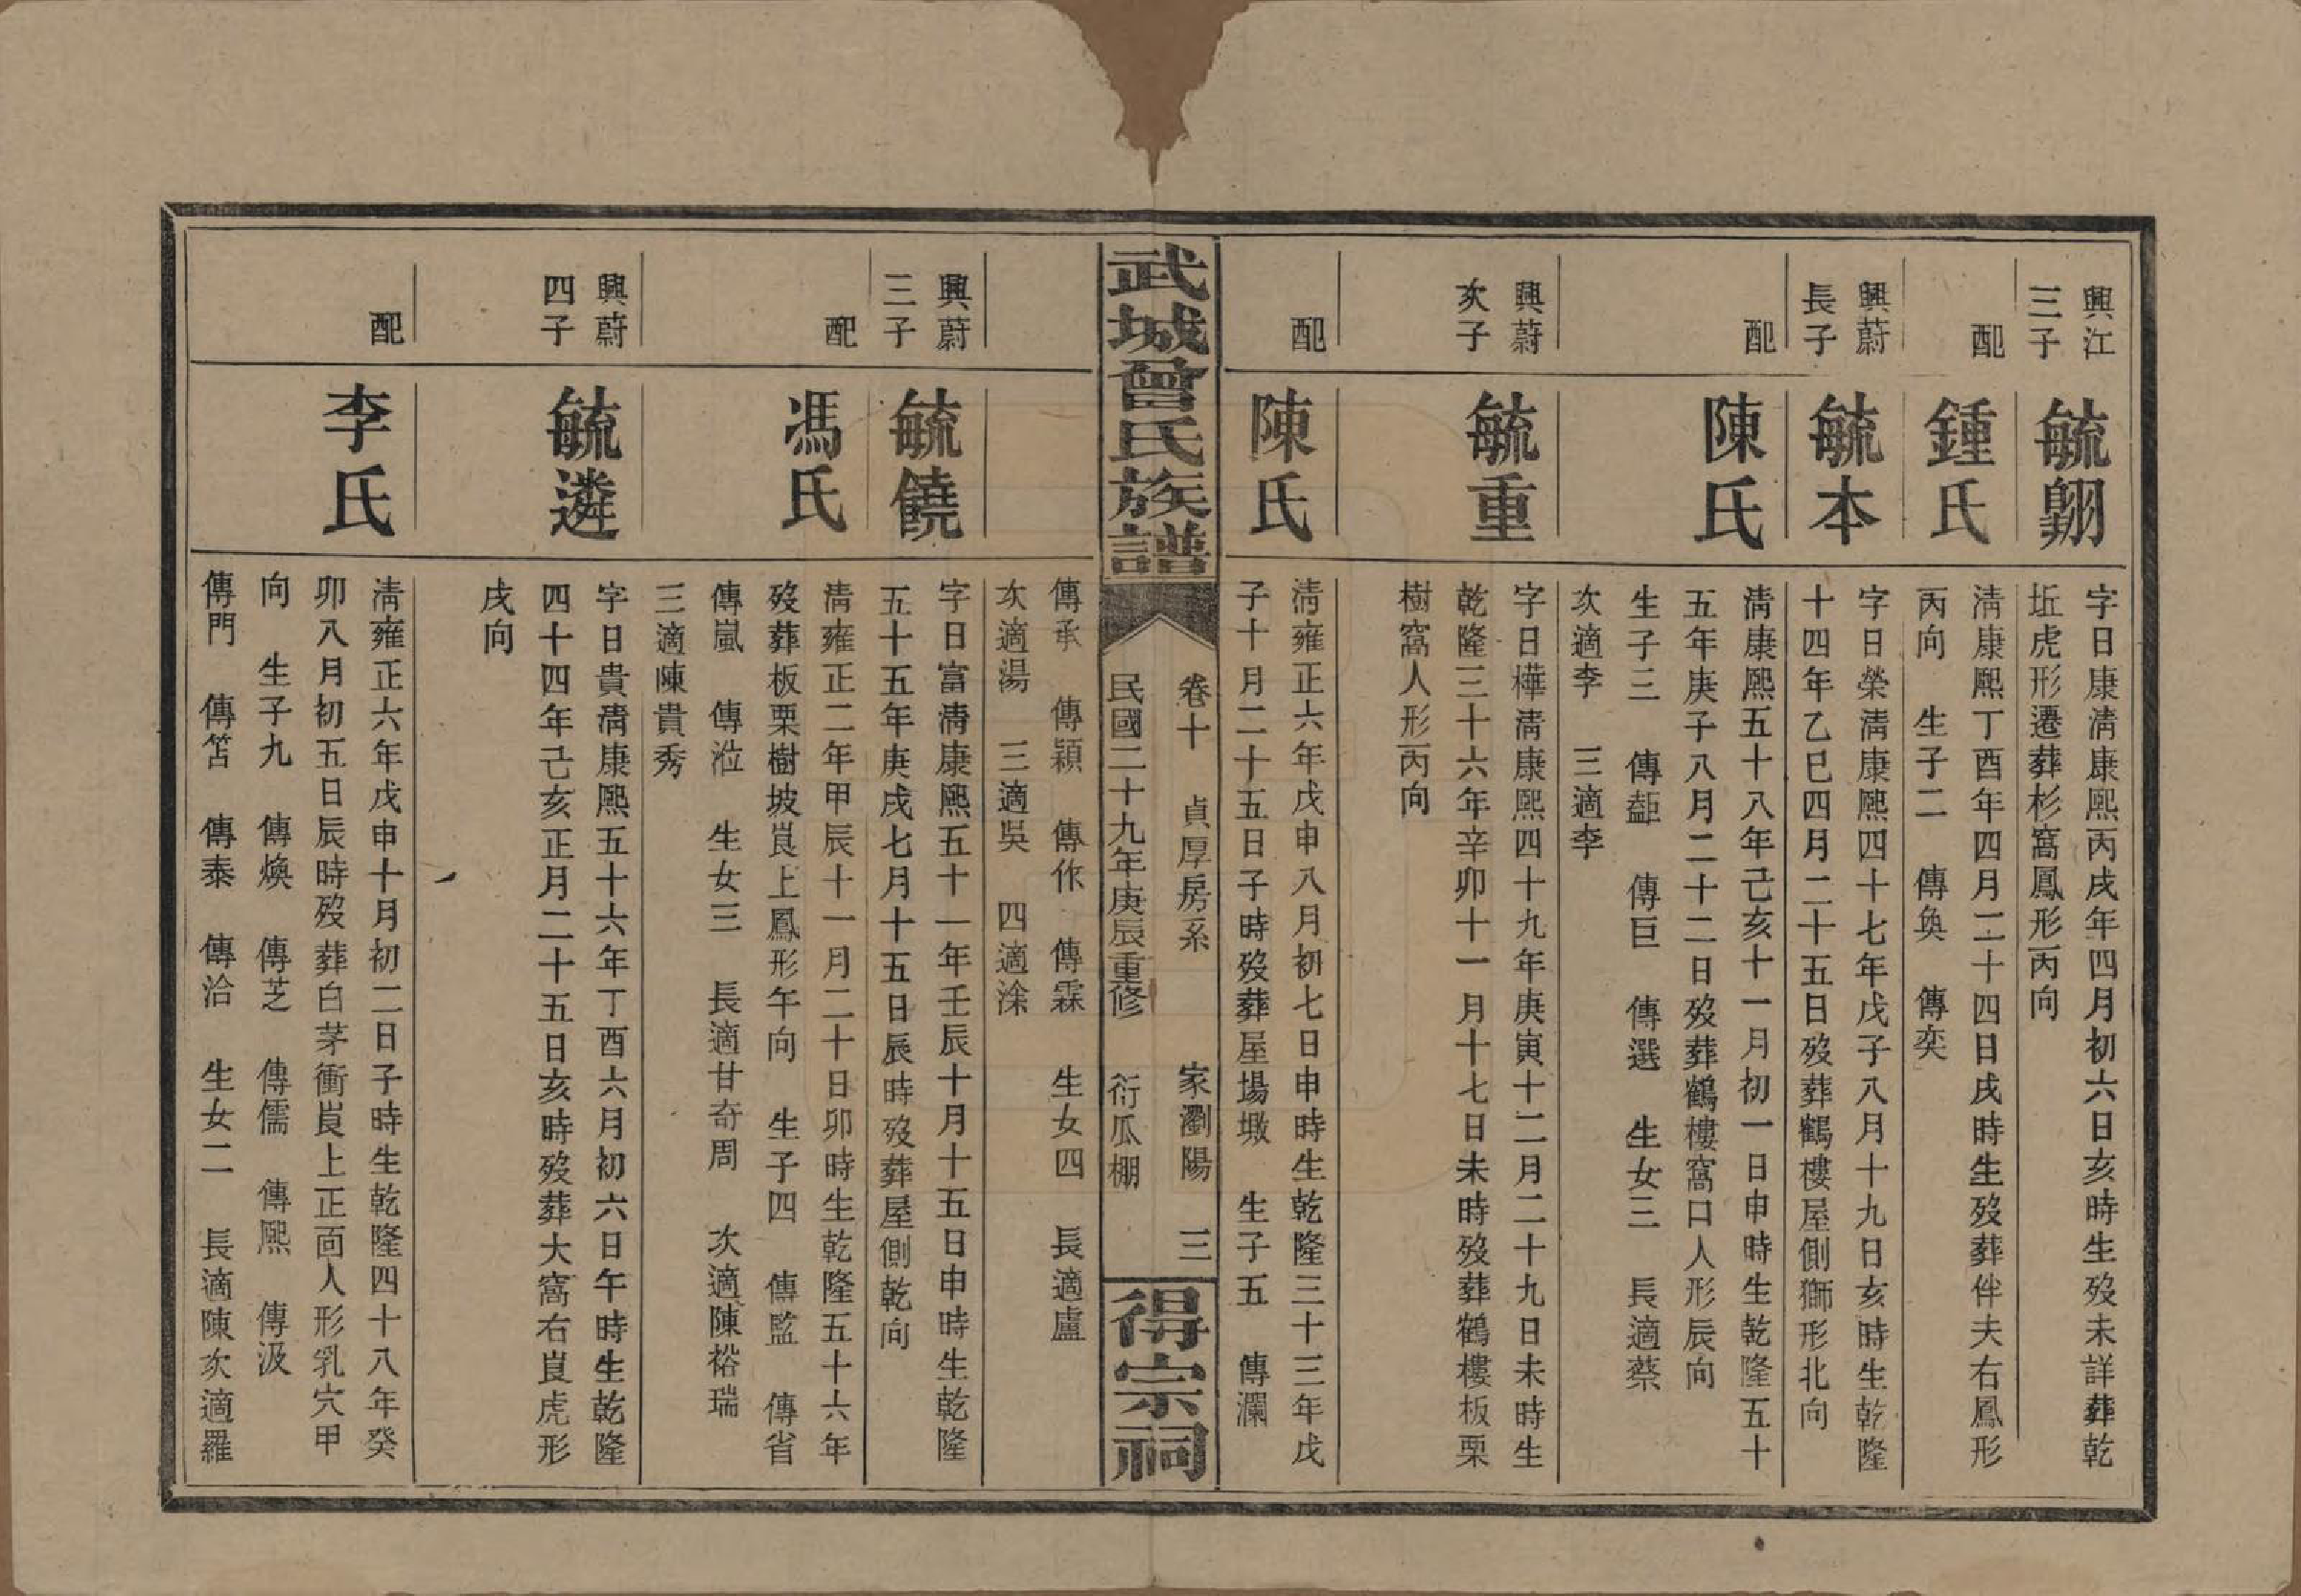 興江
三子
毓翱
字日康清康熙丙戌年四月初六日亥時生歿未詳葬乾
坵虎形遷葬杉窩鳳形丙向
配
鍾氏
清康熙丁酉年四月二十四日戌時生歿葬伴夫右鳳形
丙向 生子二 傳奐 傳奕
興蔚
長子
毓本
字日榮清康熙四十七年戊子八月十九日亥時生乾隆
十四年乙巳四月二十五日歿葬鶴樓屋側獅形北向
配
陳氏
清康熙五十八年己亥十一月初一日申時生乾隆五十
五年庚子八月二十二日歿葬鶴樓窩口人形辰向
生子三 傳㔶 傳巨 傳選 生女三 長適蔡
次適李 三適李
興蔚
次子
毓重
字日樺清康熙四十九年庚寅十二月二十九日未時生
乾隆三十六年辛卯十一月十七日未時歿葬鶴樓板栗
樹窩人形丙向
配
陳氏
清雍正六年戊申八月初七日申時生乾隆三十三年戊
子十月二十五日子時歿葬屋場墩 生子五 傳瀾
武城曾氏族譜
卷十 貞厚房系 家瀏陽 三
民國二十九年庚辰重修 衍瓜棚
得宗祠
傳承 傳穎 傳作 傳霖 生女四 長適盧
次適湯 三適吳 四適涂
興蔚
三子
毓饒
字日富清康熙五十一年壬辰十月十五日申時生乾隆
五十五年庚戌七月十五日辰時歿葬屋側乾向
配
馮氏
清雍正二年甲辰十一月二十日卯時生乾隆五十六年
歿葬板栗樹坡崀上鳳形午向 生子四 傳監 傳省
傳嵐 傳涖 生女三 長適甘奇周 次適陳裕瑞
三適陳貴秀
興蔚
四子
毓遴
字日貴清康熙五十六年丁酉六月初六日午時生乾隆
四十四年己亥正月二十五日亥時歿葬大窩右崀虎形
戌向
配
李氏
清雍正六年戊申十月初二日子時生乾隆四十八年癸
卯八月初五日辰時歿葬白茅衝崀上正面人形乳穴甲
向 生子九 傳煥 傳芝 傳儒 傳熙 傳汲
傳門 傳笘 傳泰 傳洽 生女二 長適陳次適羅